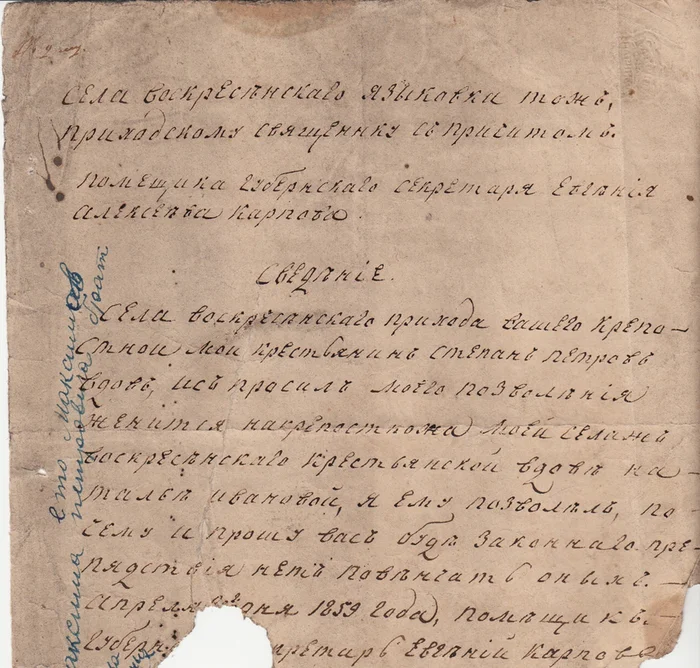 села воскресѣнскаго языковка тожъ,
приходскому священнику съ причтомъ.
помещика губернскаго секретаря Евгѣнія
алексеѣва Карпова.
Сведѣніе.
Села воскресѣнскаго прихода вашего крепо-
стной мой крестьянинъ степанъ петровъ
вдовъ, исъ просилъ моего позволѣнія
женится на крепостной моей села жъ
воскресѣнскаго крестьянской вдовѣ на-
тальѣ ивановой, я ему позволѣлъ, по-
сему и прошу васъ будѣ законнаго пре-
пядствія нетъ повѣнчать оныхъ.-
апреля дня 1859 года, помѣщикъ.
Губерн претарь Евгѣній Карпов